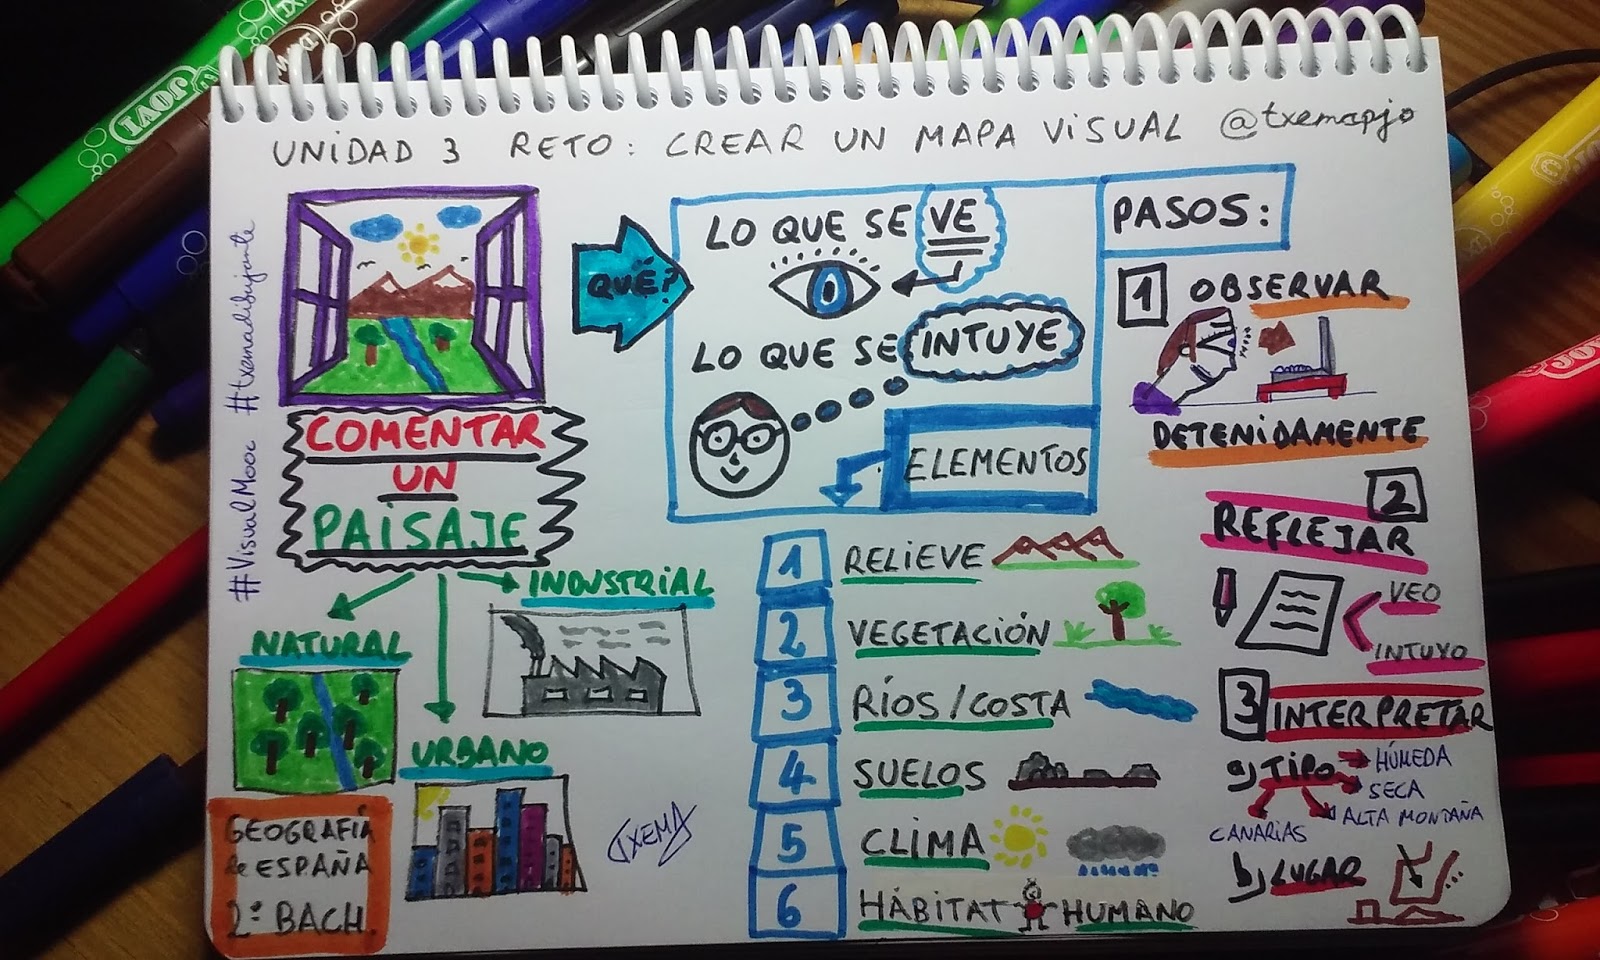 UNIDAD 3 RETO: CREAR UN MAPA VISUAL @txemapjo
#VisualMooc #txemadibujante
COMENTAR
UN
PAISAJE
NATURAL
INDUSTRIAL
URBANO
GEOGRAFÍA
de ESPAÑA
2º BACH.
TXEMA
QUÉ?
LO QUE SE VE
LO QUE SE INTUYE
ELEMENTOS
1 RELIEVE
2 VEGETACIÓN
3 RÍOS/COSTA
4 SUELOS
5 CLIMA
6 HÁBITAT HUMANO
PASOS:
1 OBSERVAR
DETENIDAMENTE
2
REFLEJAR
VEO
INTUYO
3 INTERPRETAR
a) TIPO HÚMEDA
SECA
ALTA MONTAÑA
CANARIAS
b) LUGAR
JOVI
JOVI